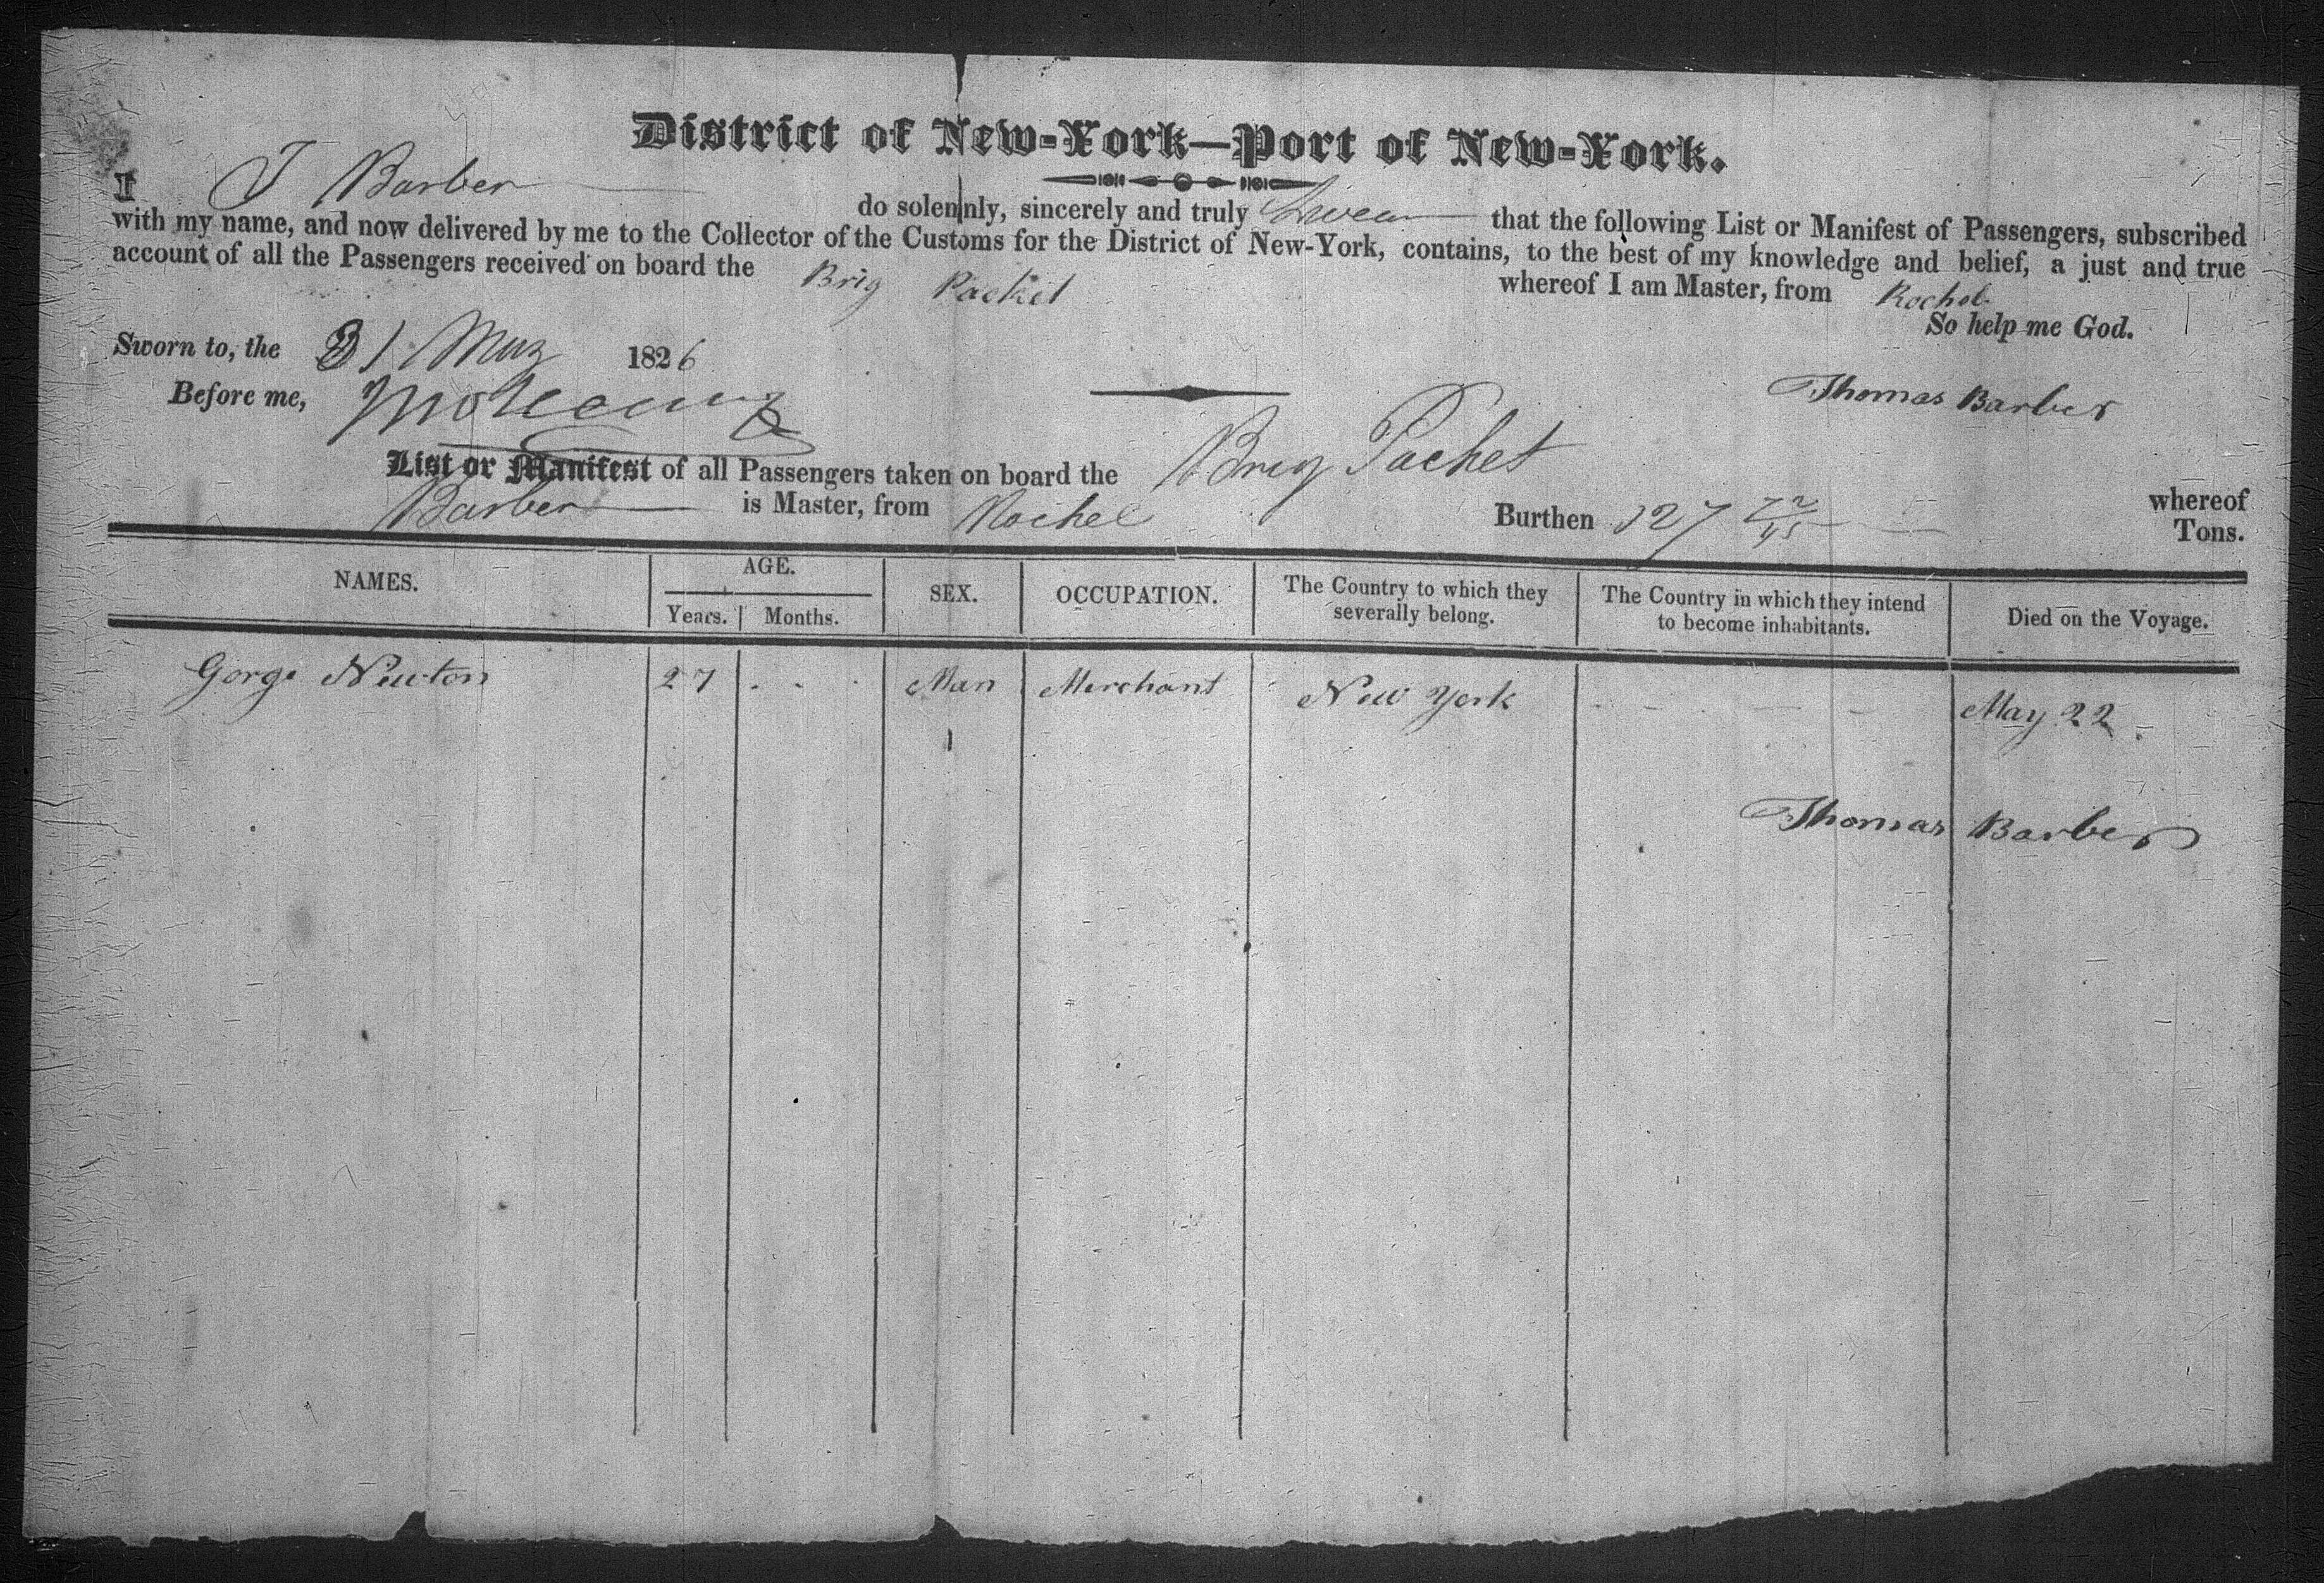 District of New-York—Port of New-York.
I T Barber do solemnly, sincerely and truly Swear that the following List or Manifest of Passengers, subscribed
with my name, and now delivered by me to the Collector of the Customs for the District of New-York, contains, to the best of my knowledge and belief, a just and true
account of all the Passengers received on board the Brig Packet whereof I am Master, from Rochel
So help me God.
Sworn to, the 31 May 1826
Before me,
Thomas Barber
List or Manifest of all Passengers taken on board the Brig Packet whereof
Barber is Master, from Rochel Burthen Tons.
NAMES. AGE. SEX. OCCUPATION. The Country to which they severally belong. The Country in which they intend to become inhabitants. Died on the Voyage.
Years. Months.
Gorge Newton 27 Man Merchant New York May 22
1
Thomas Barber